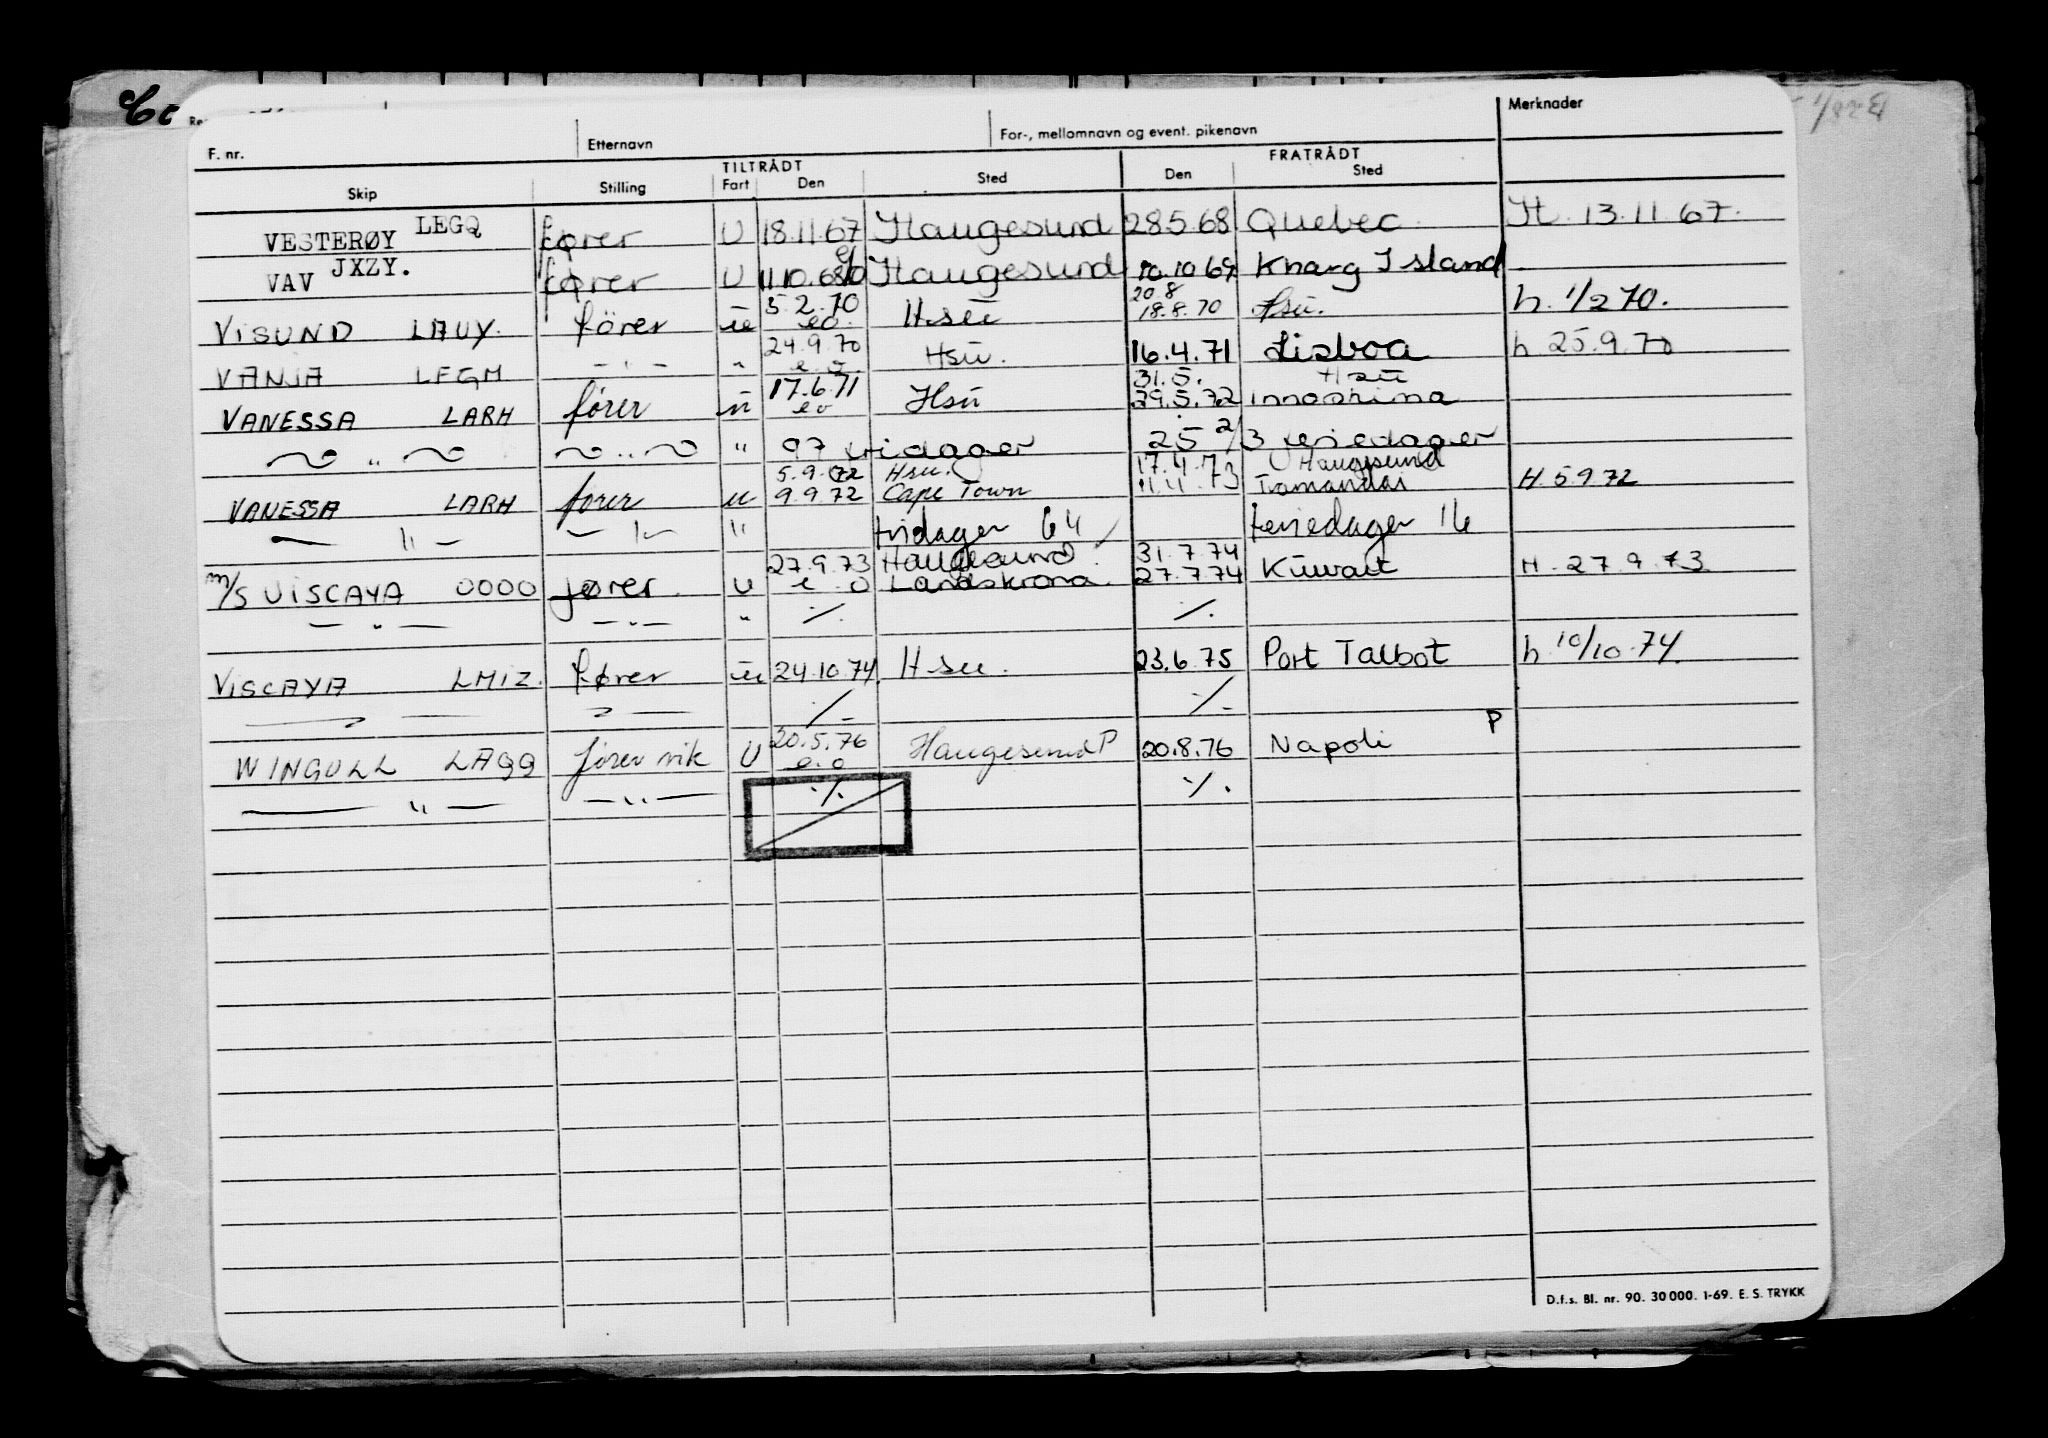 F. nr. Etternavn For-, mellomnavn og event. pikenavn Merknader
TILTRÅDT FRATRÅDT
Skip Stilling Fart Den Sted Den Sted
VESTERØY LEGQ fører U 18.11.67 Haugesund 28.5.68 Quebec H. 13.11.67.
VAV JXZY. fører U Haugesund 10.10.69 Kharg Island
5.2.70 20.8
VISUND LAUY. fører u e.o. Hsu 18.8.70 Hsu. h. 1/2 70.
24.9.70
VANJA LEGM - " - " e.o. Hsu. 16.4.71 Lisboa h 25.9.70
17.6.71 31.5. Hsu
VANESSA LARH fører u e.o Hsu 29.5.72
" " 97 fridager 25 2/3 feriedager
5.9.72 Hsu. 17.4.73 Haugesund
VANESSA LARH fører u 9.9.72 Cape Town 11.4.73 H 5.9.72
- " - - " - " fridager 64 feriedager 16
27.9.73 Haugesund 31.7.74
m/s VISCAYA 0000 fører U e.o Landskrona. 27.7.74 Kuwait H. 27.9.73
- " - - " - " ./. ./.
VISCAYA LMIZ. fører u 24.10.74 Hsu. 23.6.75 Port Talbot h 10/10.74.
./. ./.
20.5.76 P
WINGULL LAQQ fører vik U e.o Haugesund P 20.8.76 Napoli
- " - - " - ./. ./.
D.f.s. Bl. nr. 90. 30 000. 1-69. E. S. TRYKK